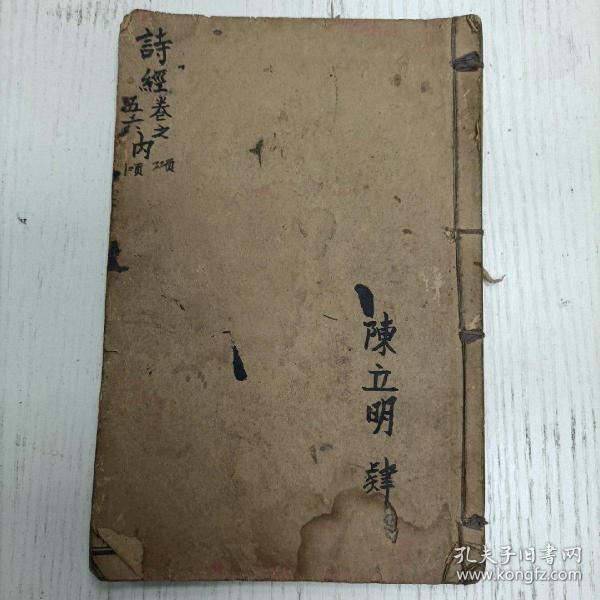 詩經卷之
五六內
陳立明 肆
孔夫子旧书网
www.kongfz.com